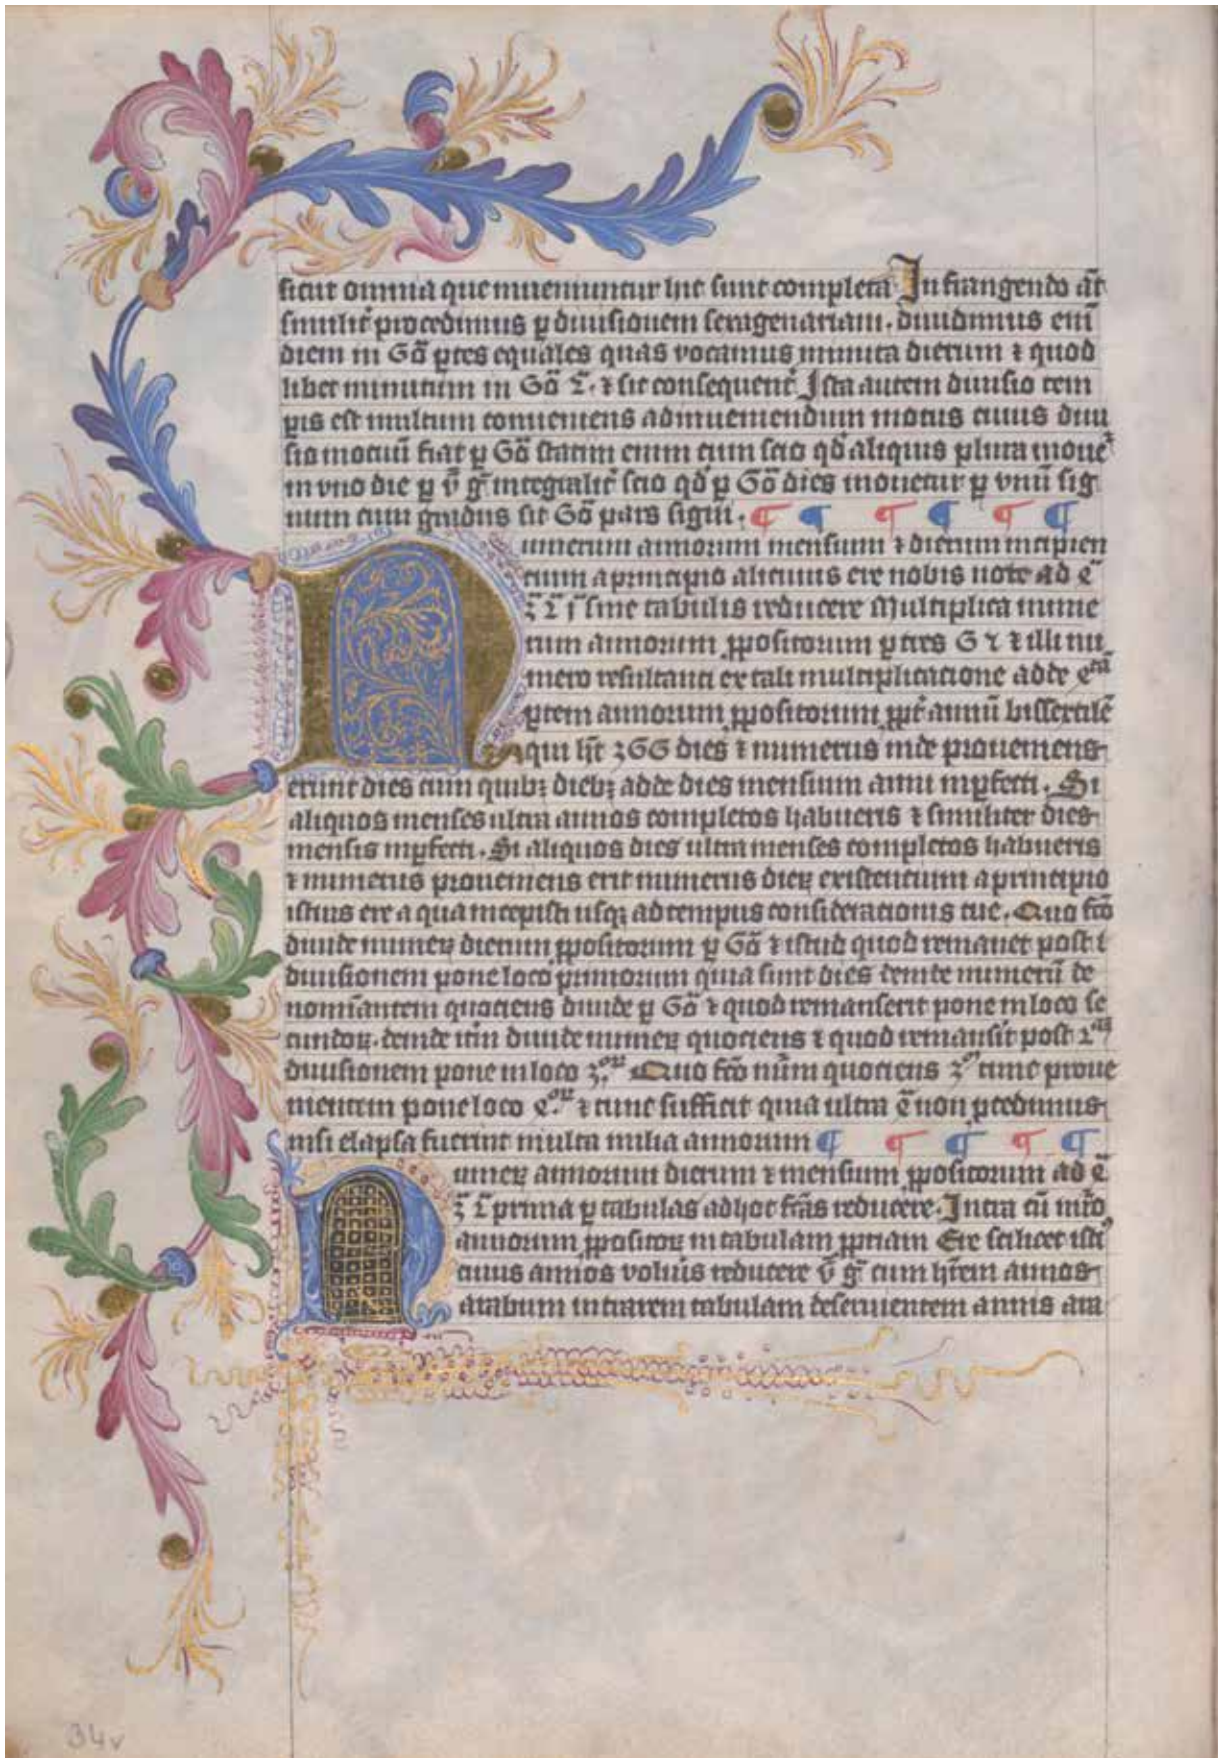 sicut omnia que inueniuntur hic sunt completa In frangendo aūt
similit̉ procedimus ꝑ diuisionem sexagenariam. diuidimus eni̅
diem in 60 ꝑtes equales quas vocamus minuta dierum ⁊ quod
libet minutum in 60 2̅. ⁊ sic consequent̉ Ista autem diuisio tem
pis est multum conueniens ad inueniendum motus cuius diui
sio motuū fiat ꝑ 60 statim enim cum scio qd̓ aliquis plura mouet̉
in vno die ꝑ v̅ gͣ integralit̉ scio qd̓ ꝑ 60 dies mouetur ꝑ vnū sig
num cum gradus sit 60 pars signi. ¶ ¶ ¶ ¶ ¶ ¶
Numerum annorum mensium ⁊ dierum incipien
cium a principio alicuius ere nobis note ad 4̅
3̅ 2̅ 1̅ sine tabulis reducere Multiplica nume
rum annorum ꝓpositorum ꝑ tres 6 2 ⁊ illi nu
mero resultanti ex tali multiplicacione adde 4ᵗᵃ̅
ꝑtem annorum ꝓpositorum ꝓpt̉ annū bissextilē
qui hēt 366 dies ⁊ numerus inde proueniens
erunt dies cum quibꝫ diebꝫ adde dies mensium anni inꝑfecti. Si
aliquos menses ultra annos completos habueris ⁊ similiter dies
mensis inꝑfecti. Si aliquos dies ultra menses completos habueris
⁊ numerus proueniens erit numerus dieꝝ existencium a principio
istius ere a qua incepisti usqꝫ ad tempus consideracionis tue. Quo fc̅o
diuide numeꝝ dierum ꝓpositorum ꝑ 60 ⁊ istud quod remanet post 1
diuisionem pone loco primorum quia sunt dies deinde numerū de
nominantem quociens diuide ꝑ 60 ⁊ quod remanserit pone in loco se
cundoꝝ. deinde it̅m diuide numeꝝ quociens ⁊ quod remansit post 2ᵃᵐ
diuisionem pone in loco 3.ᵒʳᵘ̅ Quo fc̅o nūm quociens 3ᵒ tunc proue
nientem pone loco 4.ᵒʳᵘ̅ ⁊ tunc sufficit quia ultra 4̅ non ꝓcedimus
nisi elapsa fuerint multa milia annorum ¶ ¶ ¶ ¶ ¶
Numeꝝ annorum dierum ⁊ mensium ꝓpositorum ad 4̅
3̅ 2̅ prima ꝑ tabulas ad hoc fc̅as reducere. Intra cū nr̅o
annorum ꝓpositoꝝ in tabulam ꝓpriam Ere scilicet isti᾽
cuius annos volūis reducere v̅ gͣ cum hr̅em annos
arabum intrarem tabulam deseruientem annis ara
34v